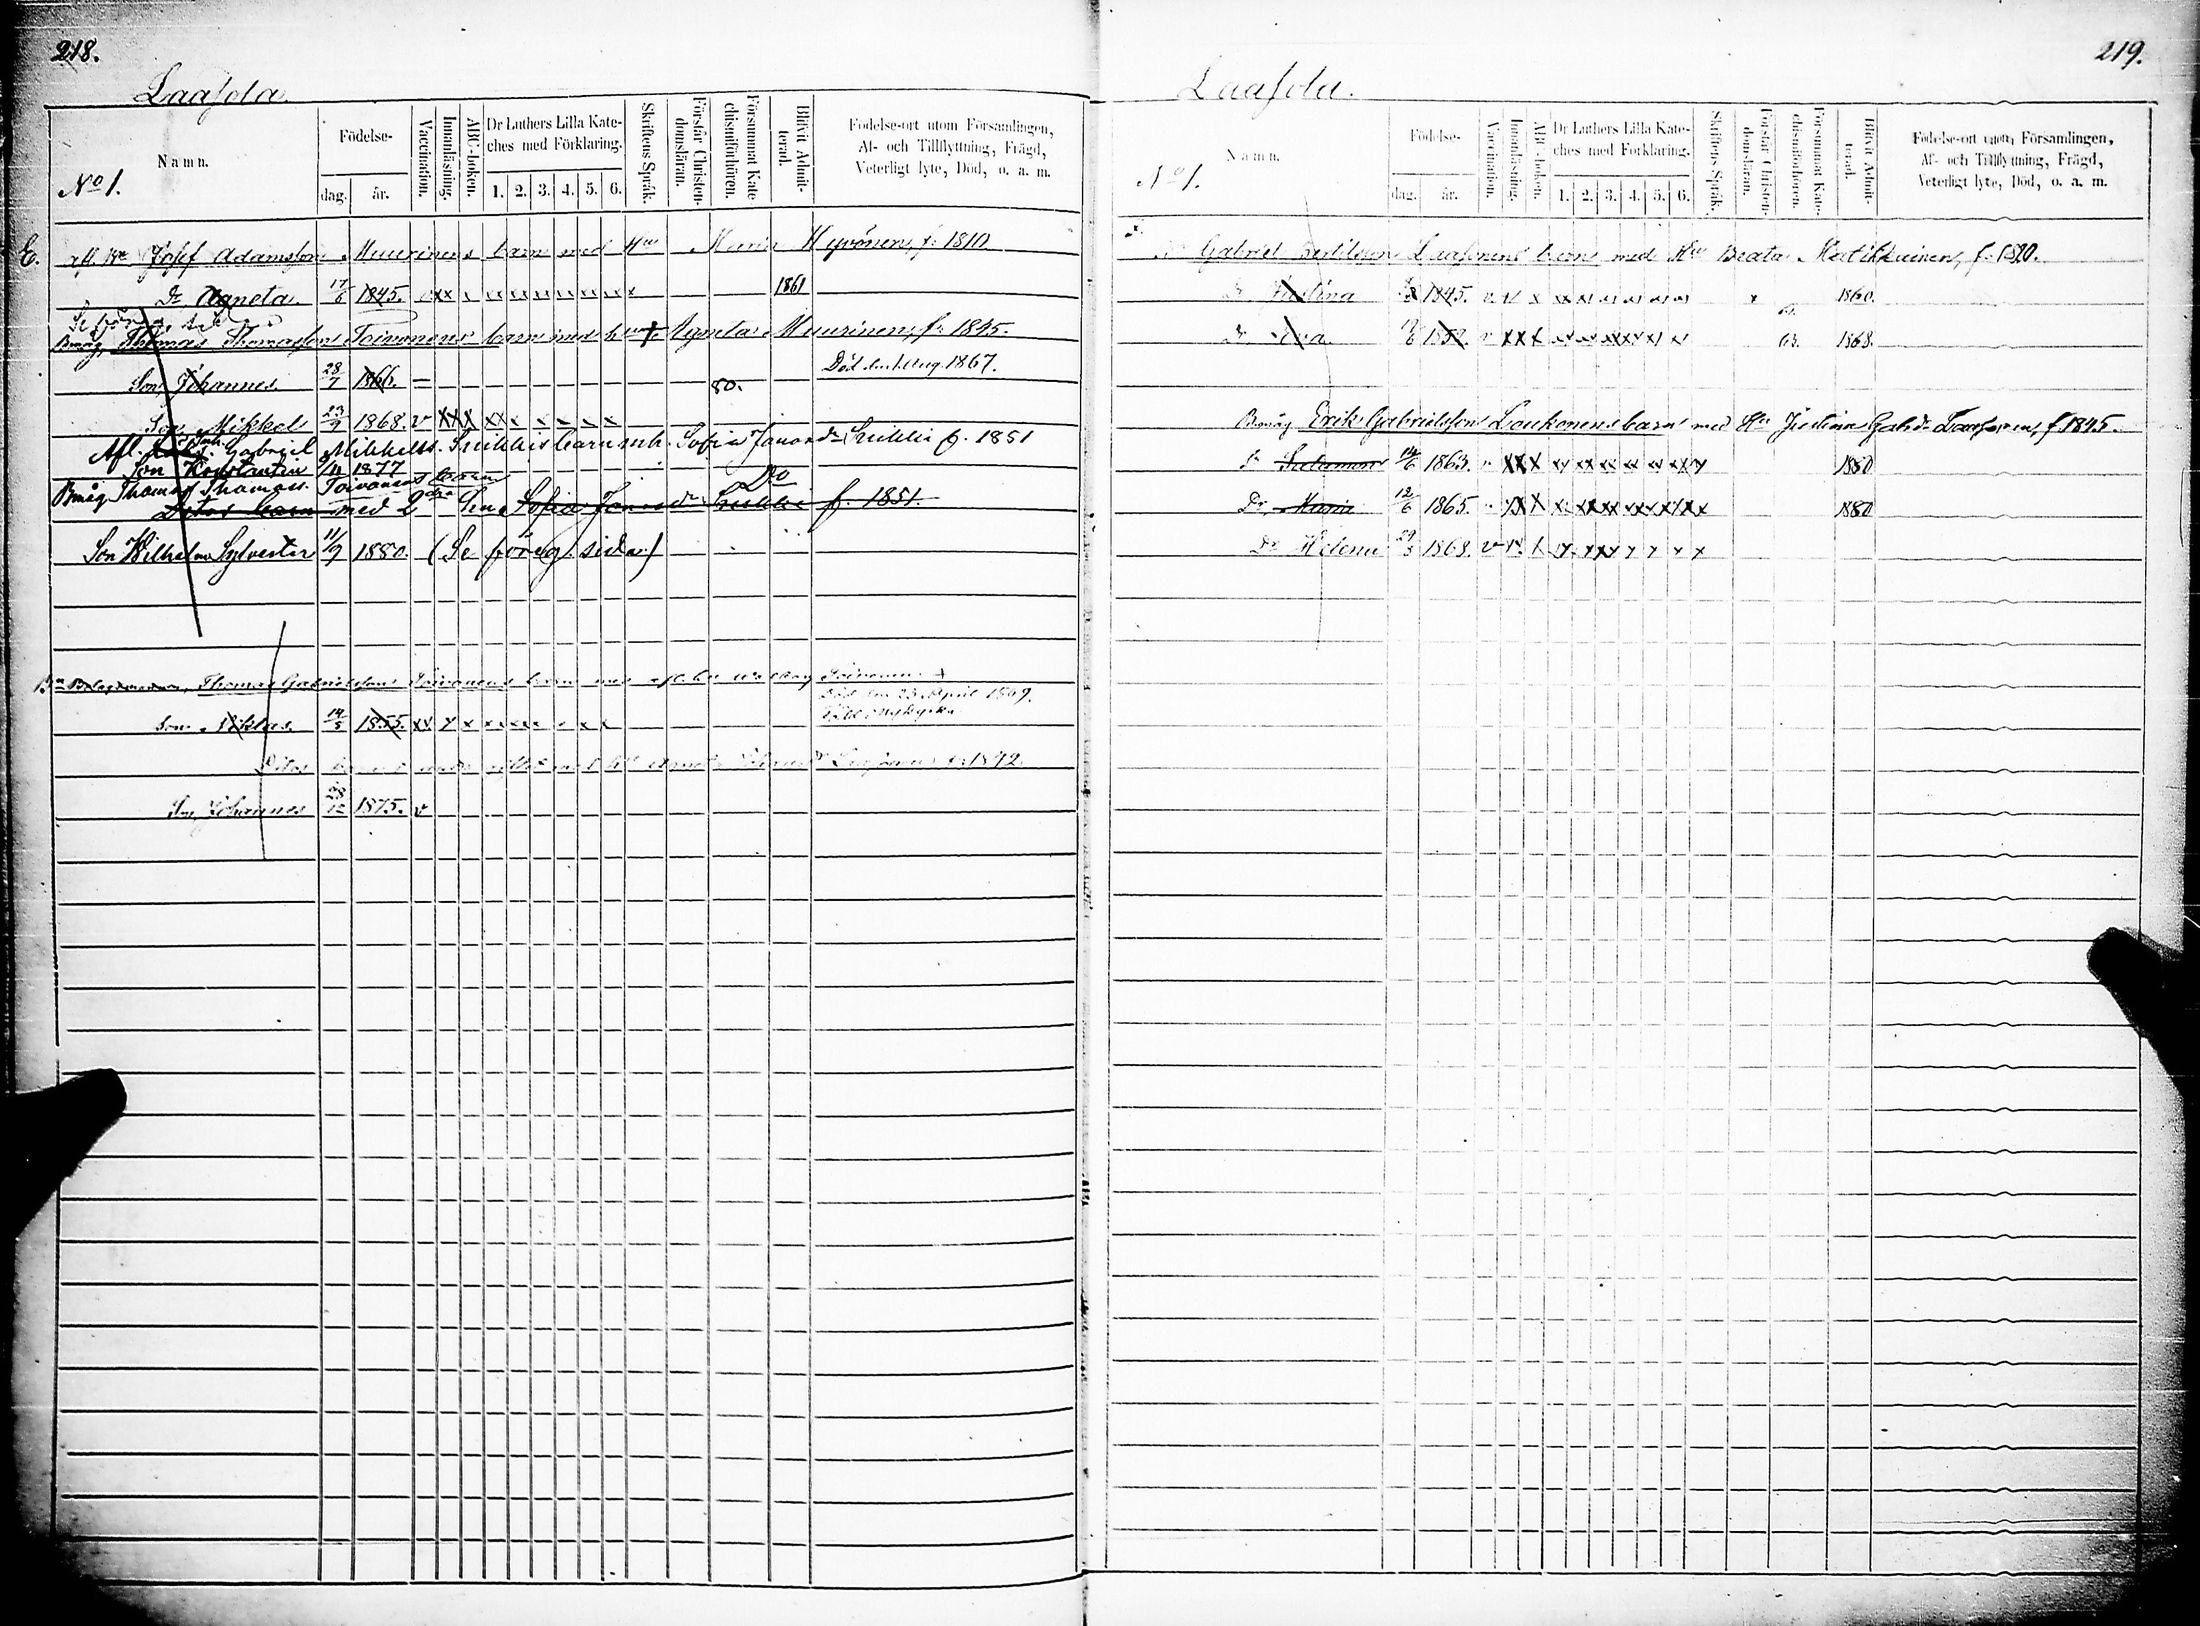 218.
Laasola.
No 1.
Namn.
Födelse-
dag. år.
Vaccination.
Innanläsning.
ABC-boken.
Dr Luthers Lilla Kate-
ches med Förklaring.
1. 2. 3. 4. 5. 6.
Skriftens Språk.
Förstår Christen-
domsläran.
Försummat Kate-
chismiförhören.
Blifvit Admit-
terad.
Födelse-ort utom Församlingen,
Af- och Tillflyttning, Frägd,
Veterligt lyte, Död, o. a. m.
E. afl. Josef Adamsson Muurinens barn med Hu Maria Hyvönen, f. 1810
Dr Agneta. 17/6 1845. 1861
Bmåg, Thomas Thomasson Toivonens barn med hu Agneta Muurinen, f. 1845.
Son, Johannes 28/7 1866. 80. Död den 1 Aug. 1867.
Son Mikkel 23/9 1868. v
Afl. Gabriel Mikkelss. Suikkis barn m. h. Sofia Jonasdr Suikki f. 1851
Son Konstantin 1877
Bmåg Thomas Thomass. Toivonens barn
Ditos barn med 2dra Hu Sofia Jonasdr Suikki f. 1851.
Son Wilhelm Sylvester 11/9 1880. (Se föreg. sida.)
Thomas Gabrielsson Toivonens barn med Toivonen
Död den 23 April 1869.
Son Niklas. 14/5 1855.
Ditos 1842.
Son, Johannes 28/12 1875. v
219.
Laasola.
No 1.
Namn.
Födelse-
dag. år.
Vaccination.
Innanläsning.
ABC-boken.
Dr Luthers Lilla Kate-
ches med Förklaring.
1. 2. 3. 4. 5. 6.
Skriftens Språk.
Förstår Christen-
domsläran.
Försummat Kate-
chismiförhören.
Blifvit Admit-
terad.
Födelse-ort utom Församlingen,
Af- och Tillflyttning, Frägd,
Veterligt lyte, Död, o. a. m.
Gabriel Bertilsson Laasonens barn med Hu Beata Matikkainen, f. 1820.
Dr Justina 1845. 1860.
Dr Eva 1852. 63. 1868.
Bmåg Erik Gabrielsson Loukonens barn med Hu Justina Gabdr Laasonen, f. 1845.
Sn Salomon 14/6 1863. 1880
Dr Maria 12/6 1865. 1880
Dr Helena 29/3 1868. v